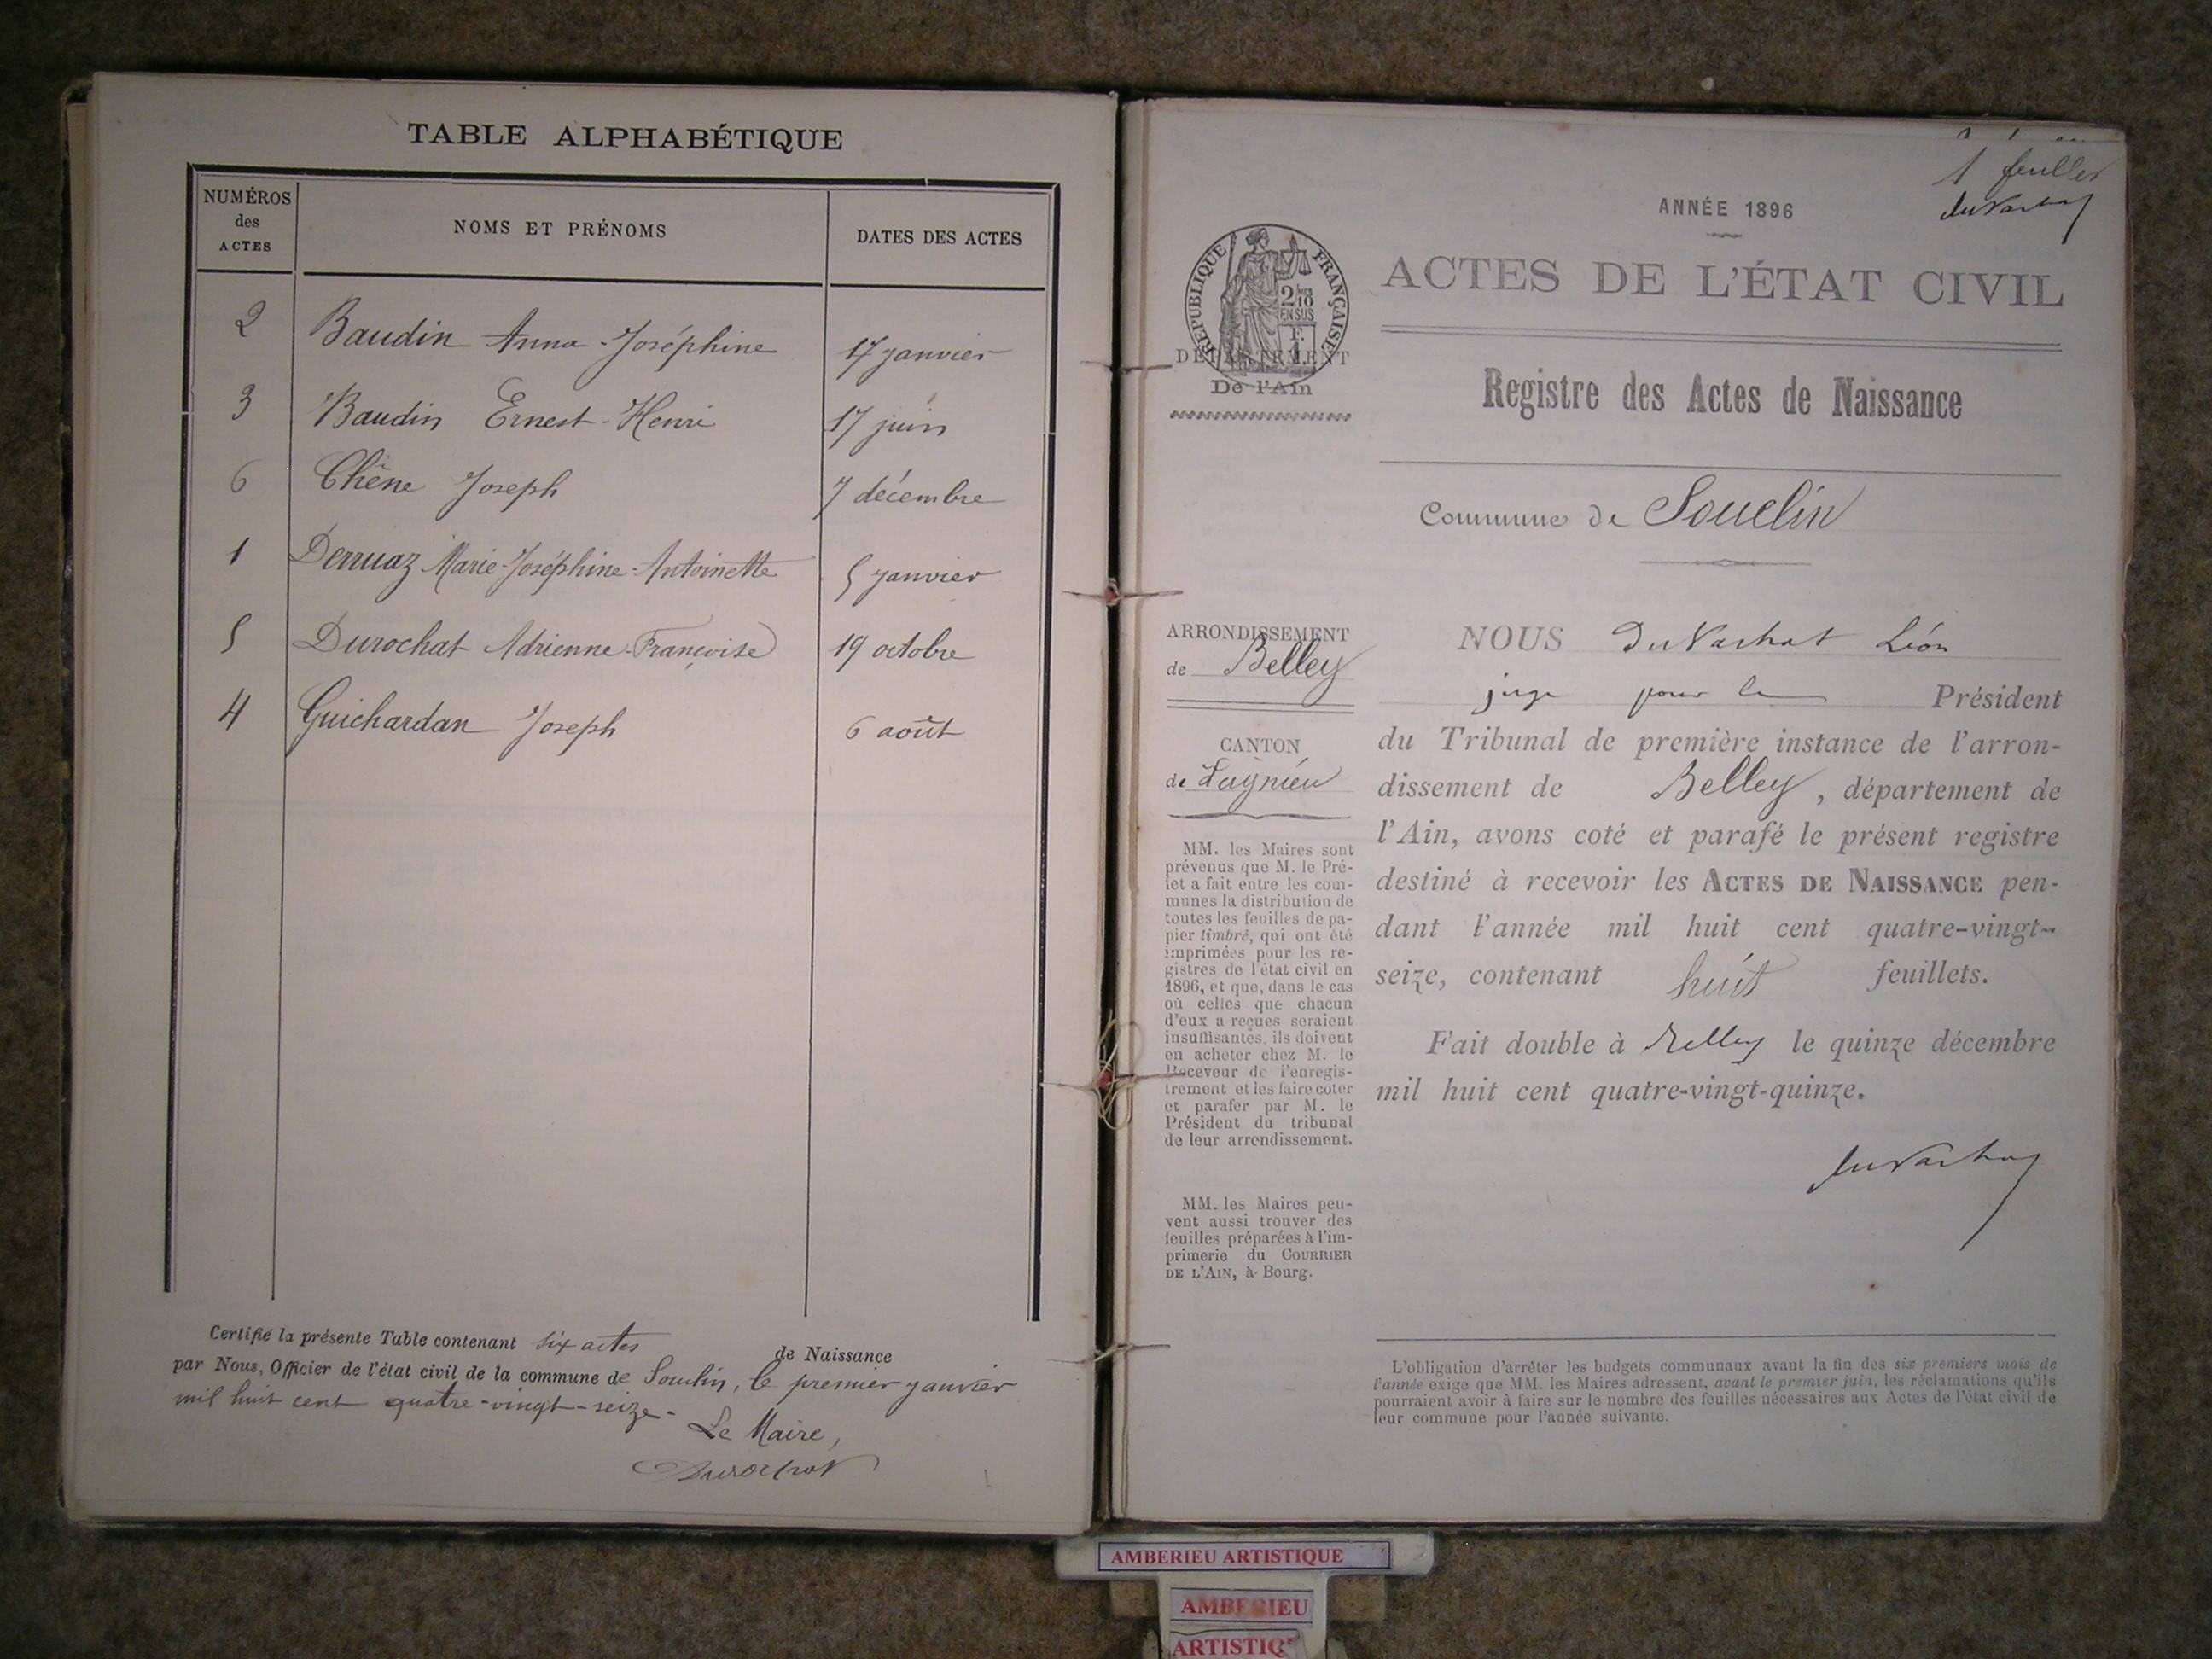 TABLE ALPHABÉTIQUE
NUMÉROS des ACTES NOMS ET PRÉNOMS DATES DES ACTES
2 Baudin Anna-Joséphine 17 janvier
3 Baudin Ernest-Henri 17 juin
6 Chêne Joseph 7 décembre
1 Derruaz Marie-Joséphine-Antoinette 5 janvier
5 Durochat Adrienne-Françoise 19 octobre
4 Guichardan Joseph 6 août
Certifié la présente Table contenant six actes de Naissance
par Nous, Officier de l'état civil de la commune de Souclin, le premier janvier
mil huit cent quatre-vingt-seize.
Le Maire,
Durochat
1 feuillet
DuVachat
ANNÉE 1896
ACTES DE L'ÉTAT CIVIL
RÉPUBLIQUE FRANÇAISE
2/10
EN SUS
DÉPARTEMENT
De l'Ain
Registre des Actes de Naissance
Commune de Souclin
ARRONDISSEMENT
de Belley
CANTON
de Lagnieu
MM. les Maires sont
prévenus que M. le Pré-
fet a fait entre les com-
munes la distribution de
toutes les feuilles de pa-
pier timbré, qui ont été
imprimées pour les re-
gistres de l'état civil en
1896, et que, dans le cas
où celles que chacun
d'eux a reçues seraient
insuffisantes, ils doivent
en acheter chez M. le
Receveur de l'enregis-
trement et les faire coter
et parafer par M. le
Président du tribunal
de leur arrondissement.
MM. les Maires peu-
vent aussi trouver des
feuilles préparées à l'im-
primerie du COURRIER
DE L'AIN, à Bourg.
NOUS DuVachat Léon
juge pour le Président
du Tribunal de première instance de l'arron-
dissement de Belley, département de
l'Ain, avons coté et parafé le présent registre
destiné à recevoir les ACTES DE NAISSANCE pen-
dant l'année mil huit cent quatre-vingt-
seize, contenant huit feuillets.
Fait double à Belley le quinze décembre
mil huit cent quatre-vingt-quinze.
DuVachat
L'obligation d'arrêter les budgets communaux avant la fin des six premiers mois de
l'année exige que MM. les Maires adressent, avant le premier juin, les réclamations qu'ils
pourraient avoir à faire sur le nombre des feuilles nécessaires aux Actes de l'état civil de
leur commune pour l'année suivante.
AMBERIEU ARTISTIQUE
AMBERIEU
ARTISTIQ